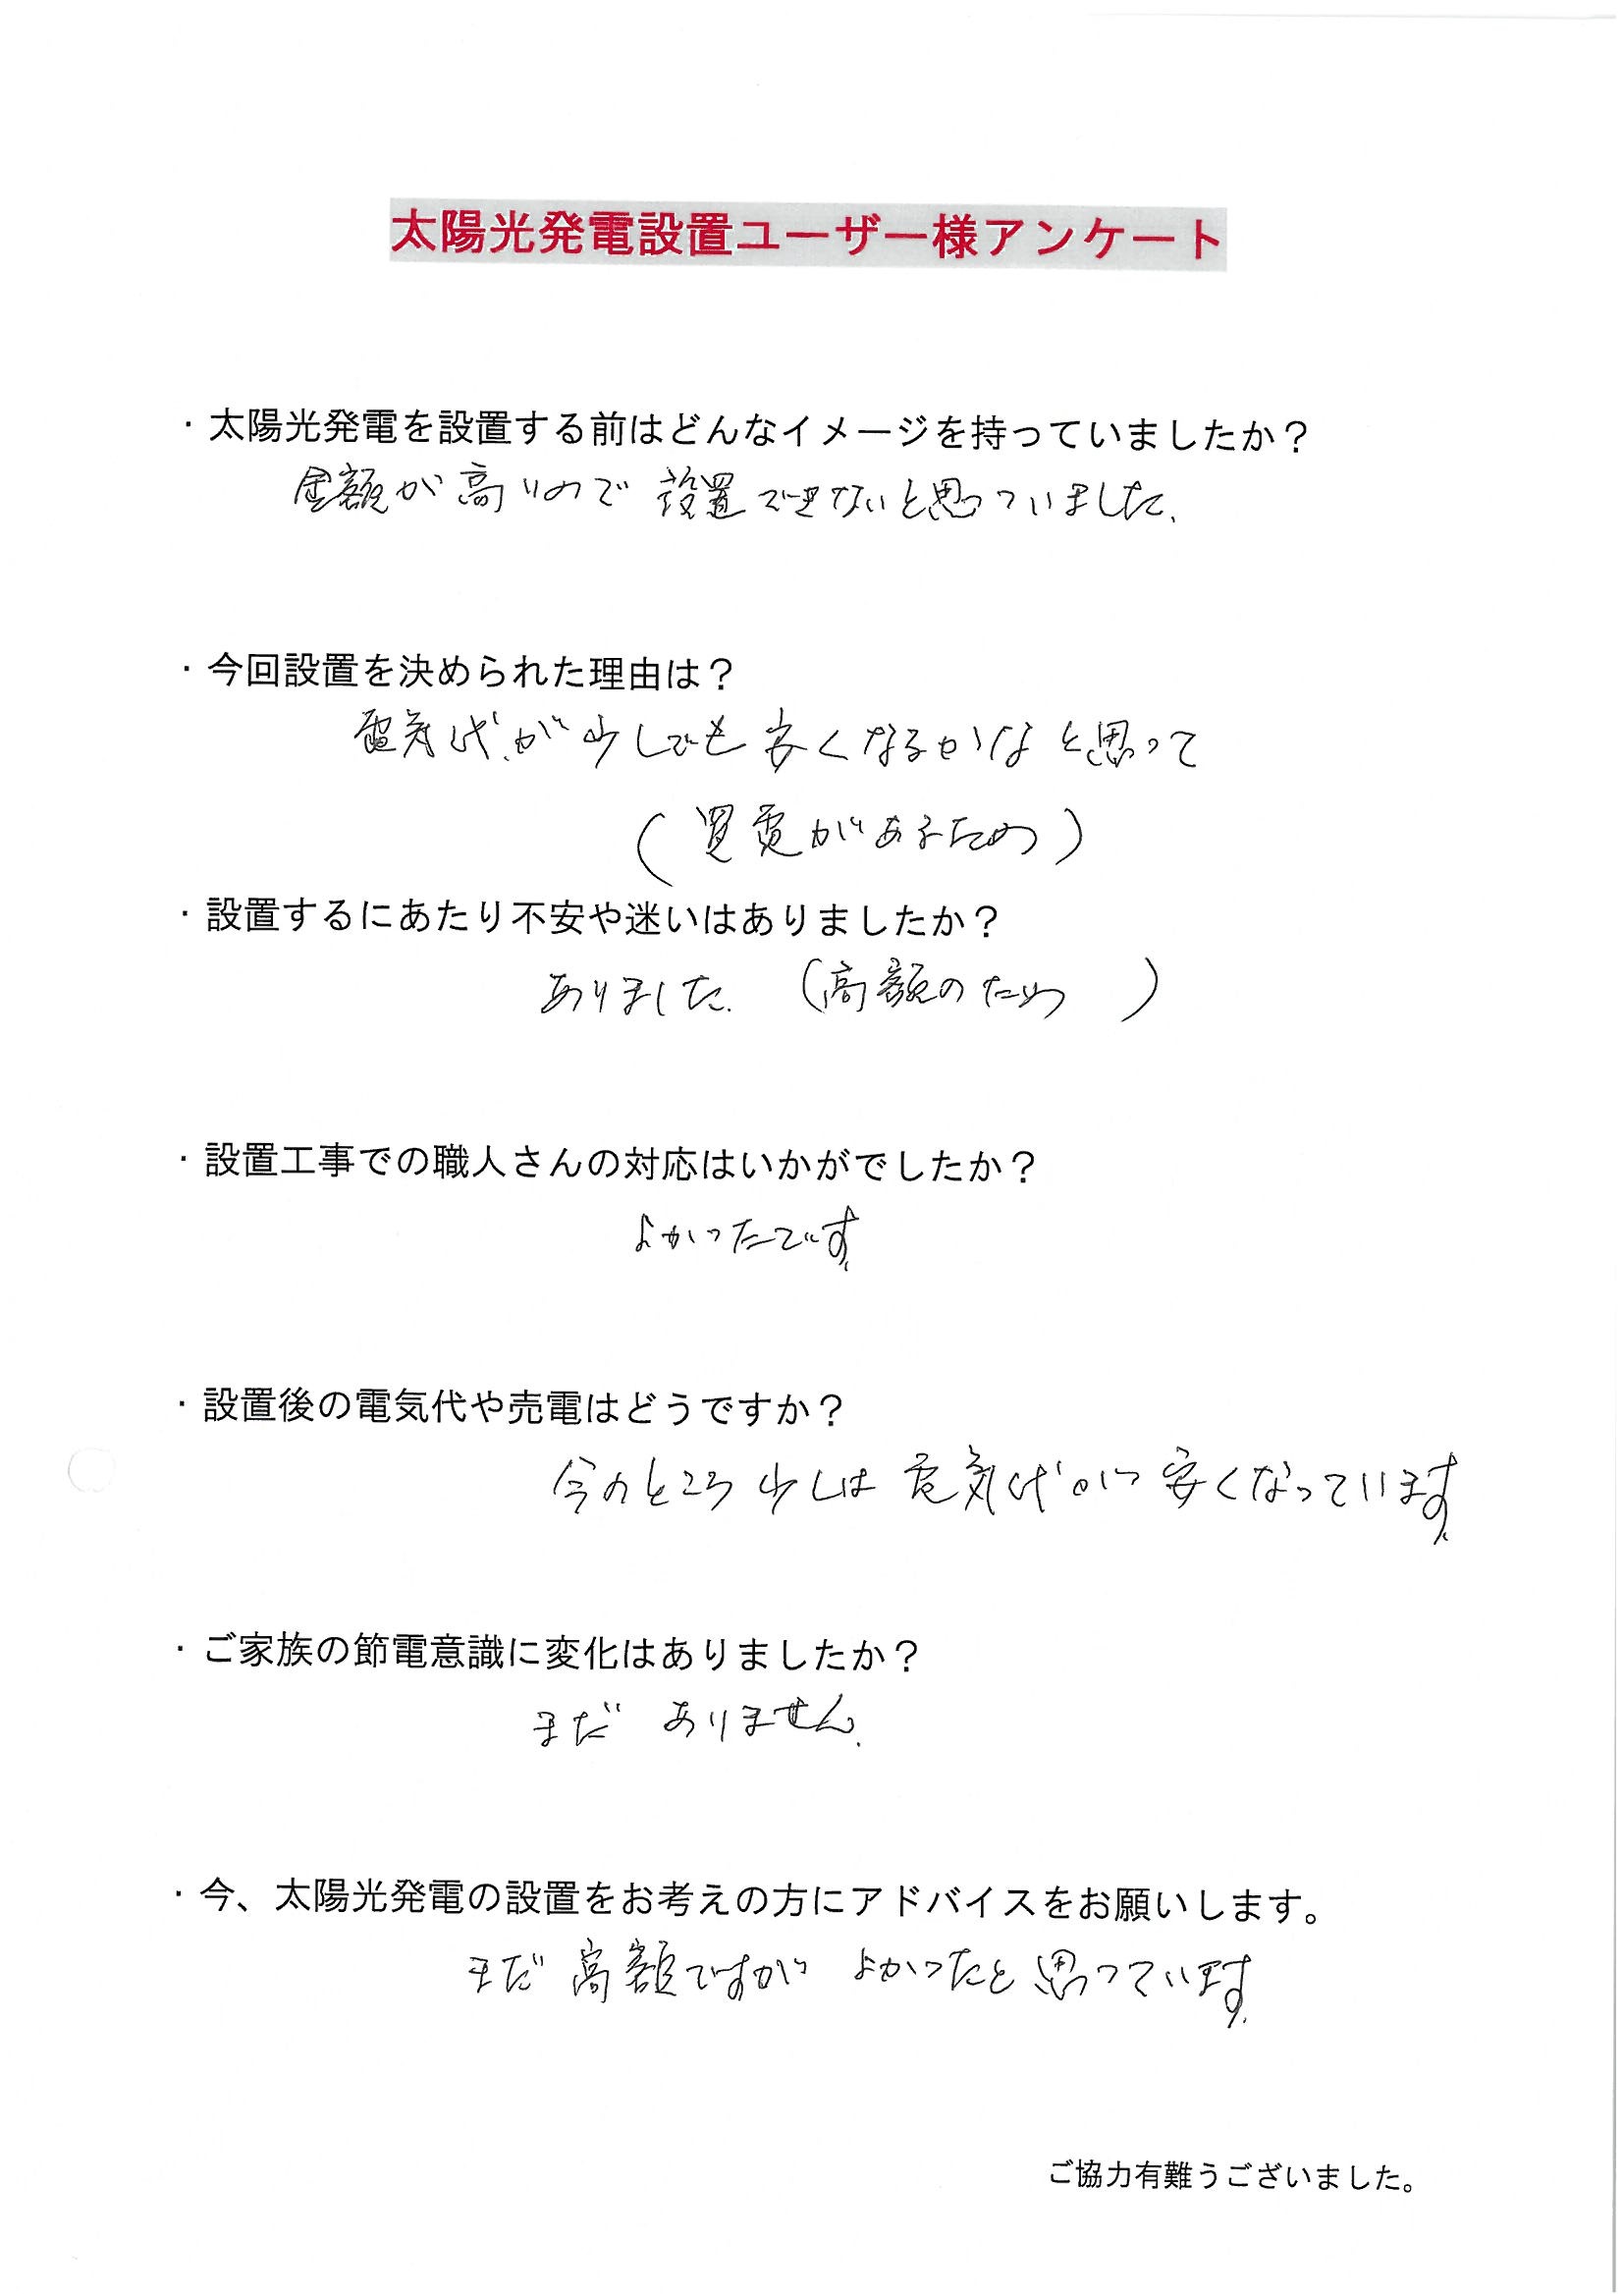 太陽光発電設置ユーザー様アンケート
・太陽光発電を設置する前はどんなイメージを持っていましたか？
金額が高いので 設置できないと思っていました。
・今回設置を決められた理由は？
電気代が少しでも安くなるかなと思って
(買電があるため)
・設置するにあたり不安や迷いはありましたか？
ありました。(高額のため )
・設置工事での職人さんの対応はいかがでしたか？
よかったです。
・設置後の電気代や売電はどうですか？
今のところ少しは電気代が安くなっています。
・ご家族の節電意識に変化はありましたか？
まだ ありません。
・今、太陽光発電の設置をお考えの方にアドバイスをお願いします。
まだ高額ですが よかったと思っています。
ご協力有難うございました。